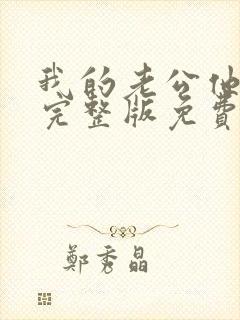 我的老公他
完整版免费
鄭秀晶